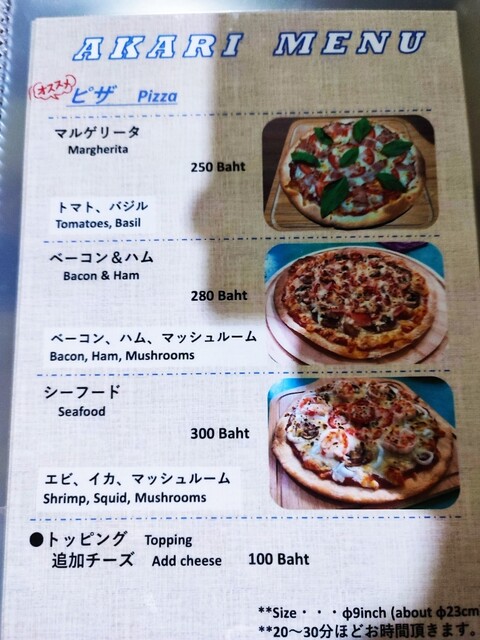 AKARI MENU
オススメ
ピザ Pizza
マルゲリータ
Margherita
250 Baht
トマト、バジル
Tomatoes, Basil
ベーコン＆ハム
Bacon & Ham
280 Baht
ベーコン、ハム、マッシュルーム
Bacon, Ham, Mushrooms
シーフード
Seafood
300 Baht
エビ、イカ、マッシュルーム
Shrimp, Squid, Mushrooms
●トッピング Topping
追加チーズ Add cheese 100 Baht
**Size・・・φ9inch (about φ23cm
**20～30分ほどお時間頂きます。